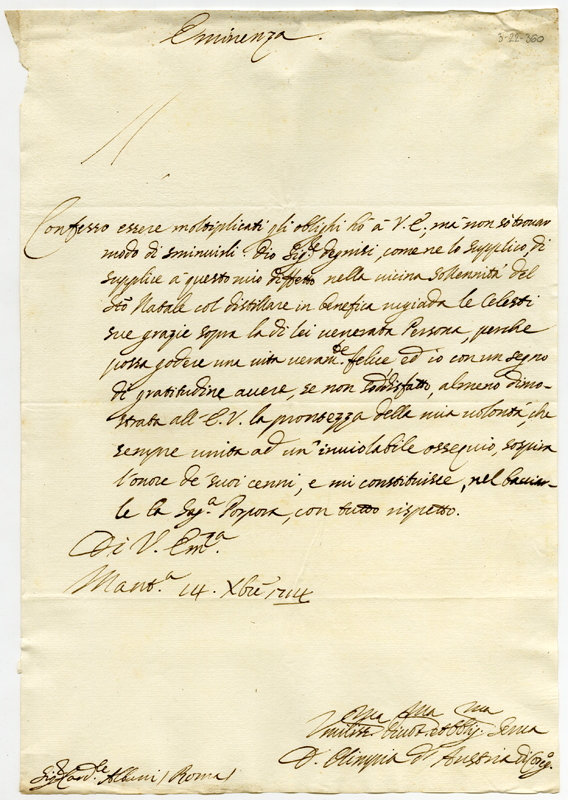 Eminenza.
3-22-360
Confesso essere moltiplicati gli oblighi hò à V. E., mà non sò trouar
modo di sminuirli. Dio Sig.re degnisi, come ne lo supplico, di
supplire à questo mio diffetto nella vicina sollennità del
Sto Natale col distillare in benefica rugiada le Celesti
sue grazie sopra la di lei venerata Persona, perche
possa godere una vita veram.te felice ed io con un segno
di gratitudine auere, se non sodisfatto, almeno dimo-
strata all' E. V. la prontezza della mia volontà, che
sempre unita ad un' inuiolabile ossequio, sospira
l'onore de suoi cenni, e mi constituisce, nel baciar-
le la Sag.a Porpora, con tutto rispetto.
Di V. Em.za
Mant.a 14. Xbre 1714
Umiliss.ma Diuot.ma et Obblig.ma Serua
D. Olimpia d'Austria
Sig.r Card.le Albani (Roma)